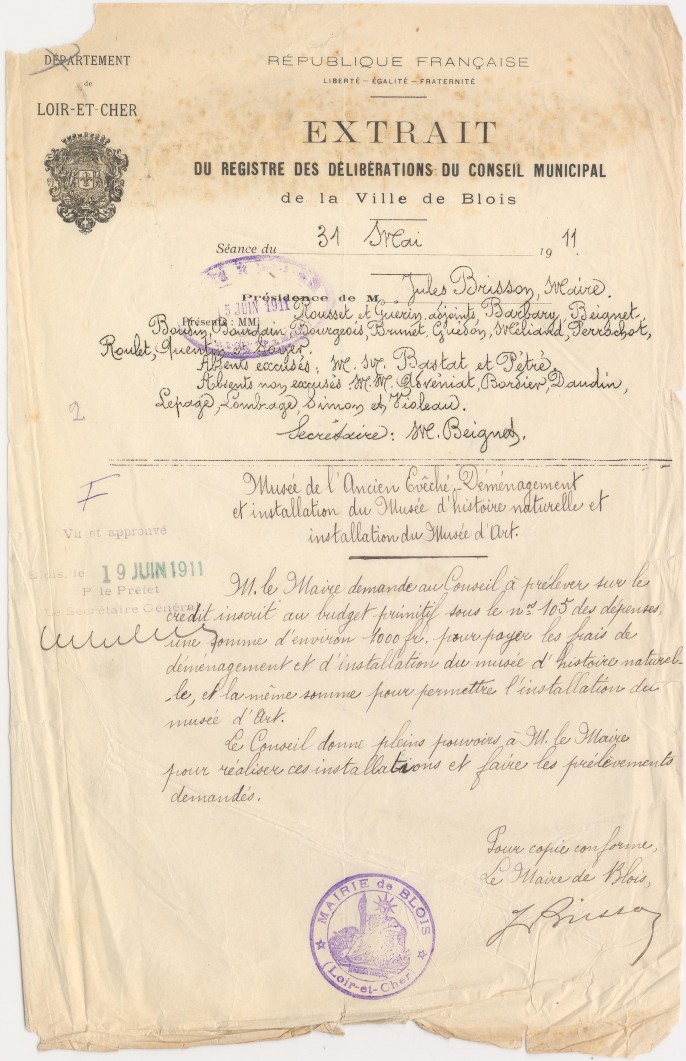 DÉPARTEMENT
de
LOIR-ET-CHER
RÉPUBLIQUE FRANÇAISE
LIBERTÉ – ÉGALITÉ – FRATERNITÉ
EXTRAIT
DU REGISTRE DES DÉLIBÉRATIONS DU CONSEIL MUNICIPAL
de la Ville de Blois
Séance du 31 Mai 1911
5 JUIN 1911
Présidence de M Jules Brisson, Maire.
Présents: MM. Rousset et Guérin, adjoints, Barbary, Beignet,
Bourdain, Bourgeois, Brunet, Guédon, Méliand, Perrochot,
Roulet, Quentin et
Absents excusés: M. M. Bastat et Pétré.
Absents non excusés M. M. Bordier, Daudin,
Lepage, Lombage, Simon et Violeau.
Secrétaire: M. Beignet.
2
F
Musée de l'Ancien Evêché,- Déménagement
et installation du Musée d'histoire naturelle et
installation du Musée d'Art.
Vu et approuvé
Blois, le 19 JUIN 1911
P le Préfet
Le Secrétaire Général
M. le Maire demande au Conseil à prélever sur le
crédit inscrit au budget primitif sous le nº 105 des dépenses,
une somme d'environ 1000 fr. pour payer les frais de
déménagement et d'installation du musée d'histoire naturel-
-le, et la même somme pour permettre l'installation du
musée d'Art.
Le Conseil donne pleins pouvoirs à M. le Maire
pour réaliser ces installations et faire les prélèvements
demandés.
Pour copie conforme,
Le Maire de Blois,
J. Brisson
MAIRIE de BLOIS
(Loir-et-Cher)